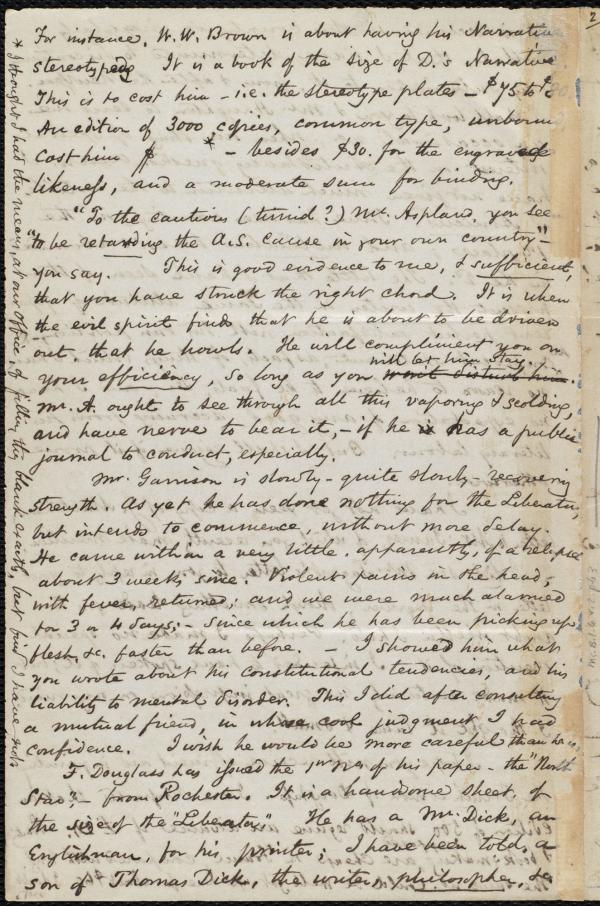 2
For instance, W.W. Brown is about having his Narrative
stereotyped. It is a book of the size of D.'s Narrative
This is to cost him – i.e. the stereotype plates – $75 to
An edition of 3000 copies, common type, unbound
cost him $ * – besides $30. for the engraved
likeness, and a moderate sum for binding.
"To the cautious (timid?) Mr. Aspland, you see
"to be retarding the A.S. cause in your own country" –
you say. This is good evidence to me, & sufficient,
that you have struck the right chord. It is when
the evil spirit finds that he is about to be driven
out, that he howls. He will compliment you on
will let him stay.
your efficiency, so long as you won't disturb him.
Mr. A. ought to see through all this vaporing & scolding,
and have nerve to bear it, – if he is has a public
journal to conduct, especially.
Mr. Garrison is slowly – quite slowly – recovering
strength. As yet he has done nothing for the Liberator,
but intends to commence, without more delay.
He came within a very little, apparently, of a relapse
about 3 weeks since. Violent pains in the head,
with fever, returned; and we were much alarmed
for 3 or 4 days; – since which he has been picking up
flesh, &c. faster than before. – I showed him what
you wrote about his constitutional tendencies, and his
liability to mental disorder. This I did after consulting
a mutual friend, in whose cool judgment I had
confidence. I wish he would be more careful than he is.
F. Douglass has issued the 1st No. of his paper – the "North
Star" – from Rochester. It is a handsome sheet, of
the size of the "Liberator." He has a Mr. Dick, an
Englishman, for his printer; I have been told, a
son of Thomas Dick, the writer, philosopher, &c
* I thought I had the means, at our office, of filling this blank exactly, but find I have not.